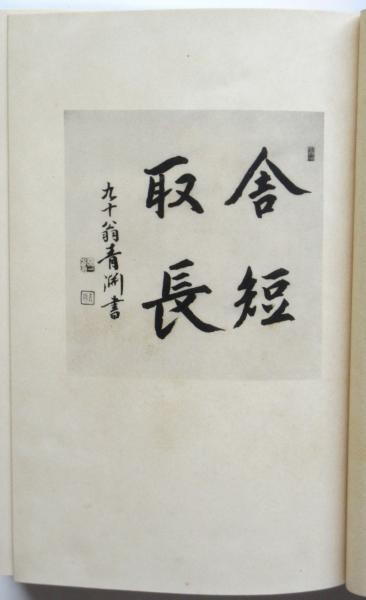 舎短
取長
九十翁青渊書